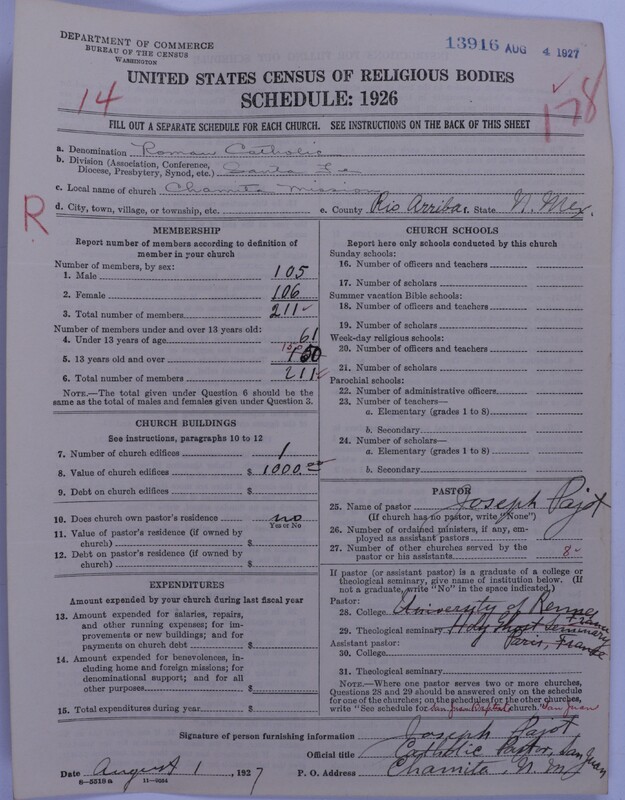 DEPARTMENT OF COMMERCE
BUREAU OF THE CENSUS
WASHINGTON
13916 AUG 4 1927
UNITED STATES CENSUS OF RELIGIOUS BODIES
SCHEDULE: 1926
14
178
FILL OUT A SEPARATE SCHEDULE FOR EACH CHURCH. SEE INSTRUCTIONS ON THE BACK OF THIS SHEET
a. Denomination Roman Catholic
b. Division (Association, Conference, Diocese, Presbytery, Synod, etc.) Santa Fe
c. Local name of church Chamita Mission
R
d. City, town, village, or township, etc. e. County Rio Arriba f. State N. Mex.
MEMBERSHIP
Report number of members according to definition of
member in your church
Number of members, by sex:
1. Male 105
2. Female 106
3. Total number of members 211
Number of members under and over 13 years old:
4. Under 13 years of age 61
5. 13 years old and over 150
6. Total number of members 211
NOTE.—The total given under Question 6 should be
same as the total of males and females given under Question 3.
CHURCH BUILDINGS
See instructions, paragraphs 10 to 12
7. Number of church edifices 1
8. Value of church edifices $ 1000.00
9. Debt on church edifices $
10. Does church own pastor's residence no
Yes or No
11. Value of pastor's residence (if owned by
church) $
12. Debt on pastor's residence (if owned by
church) $
EXPENDITURES
Amount expended by your church during last fiscal year
13. Amount expended for salaries, repairs,
and other running expenses; for im-
provements or new buildings; and for
payments on church debt $
14. Amount expended for benevolences, in-
cluding home and foreign missions; for
denominational support; and for all
other purposes $
15. Total expenditures during year $
CHURCH SCHOOLS
Report here only schools conducted by this church
Sunday schools:
16. Number of officers and teachers
17. Number of scholars
Summer vacation Bible schools:
18. Number of officers and teachers
19. Number of scholars
Week-day religious schools:
20. Number of officers and teachers
21. Number of scholars
Parochial schools:
22. Number of administrative officers
23. Number of teachers—
a. Elementary (grades 1 to 8)
b. Secondary
24. Number of scholars—
a. Elementary (grades 1 to 8)
b. Secondary
PASTOR
25. Name of pastor Joseph Pajot
(If church has no pastor, write "None")
26. Number of ordained ministers, if any, em-
ployed as assistant pastors
27. Number of other churches served by the
pastor or his assistants 8
If pastor (or assistant pastor) is a graduate of a college or
theological seminary, give name of institution below. (If
not a graduate, write "No" in the space indicated.)
Pastor:
28. College University of Rennes France
29. Theological seminary Holy Ghost Seminary
Assistant pastor: Paris, France
30. College
31. Theological seminary
NOTE.—Where one pastor serves two or more churches,
Questions 28 and 29 should be answered only on the schedule
for one of the churches; on the schedules for the other churches,
write "See schedule for San Juan Baptist church." San Juan
Signature of person furnishing information Joseph Pajot
Official title Catholic Pastor, San Juan
Date August 1, 1927 P. O. Address Chamita, N. M.
8—5318a 11—5324